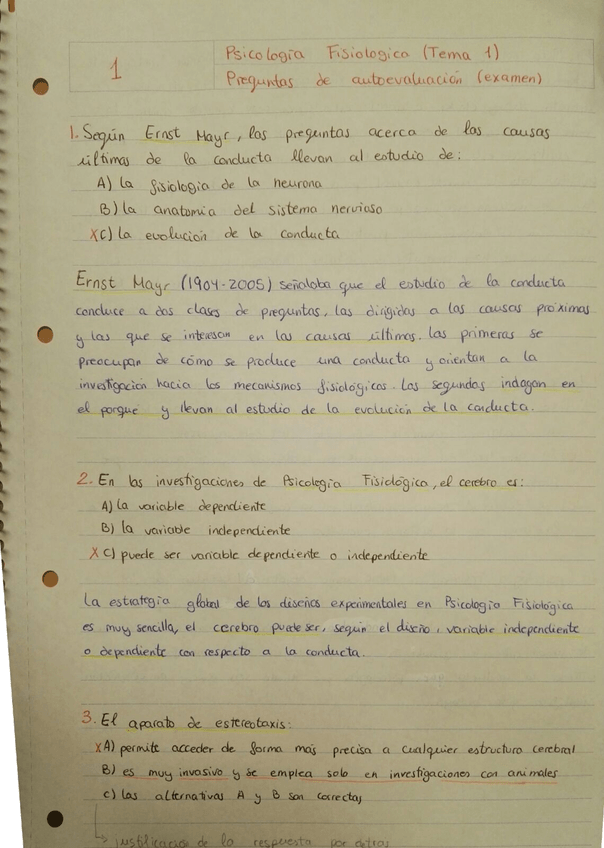 1
Psicología Fisiologica (Tema 1)
Preguntas de autoevaluación (examen)
1. Según Ernst Mayr, las preguntas acerca de las causas
últimas de la conducta llevan al estudio de:
A) la fisiologia de la neurona
B) la anatomía del sistema nervioso
XC) la evolución de la conducta
Ernst Mayr (1904-2005) señalaba que el estudio de la conducta
conduce a dos clases de preguntas, las dirigidas a las causas próximas
y las que se interesan en las causas últimas. las primeras se
preocupan de cómo se produce una conducta y orientan a la
investigación hacia los mecanismos fisiológicos. Las segundas indagan en
el porque y llevan al estudio de la evolución de la conducta.
2. En las investigaciones de Psicología Fisiológica, el cerebro es:
A) la variable dependiente
B) la variable independiente
X C) puede ser variable dependiente o independiente
La estrategia global de los diseños experimentales en Psicología Fisiológica
es muy sencilla, el cerebro puede ser, según el diseño, variable independiente
o dependiente con respecto a la conducta.
3. El aparato de estereotaxis:
XA) permite acceder de forma más precisa a cualquier estructura cerebral
B) es muy invasivo y se emplea solo en investigaciones con animales
C) las alternativas A y B son correctas
→ justificación de la respuesta por detras